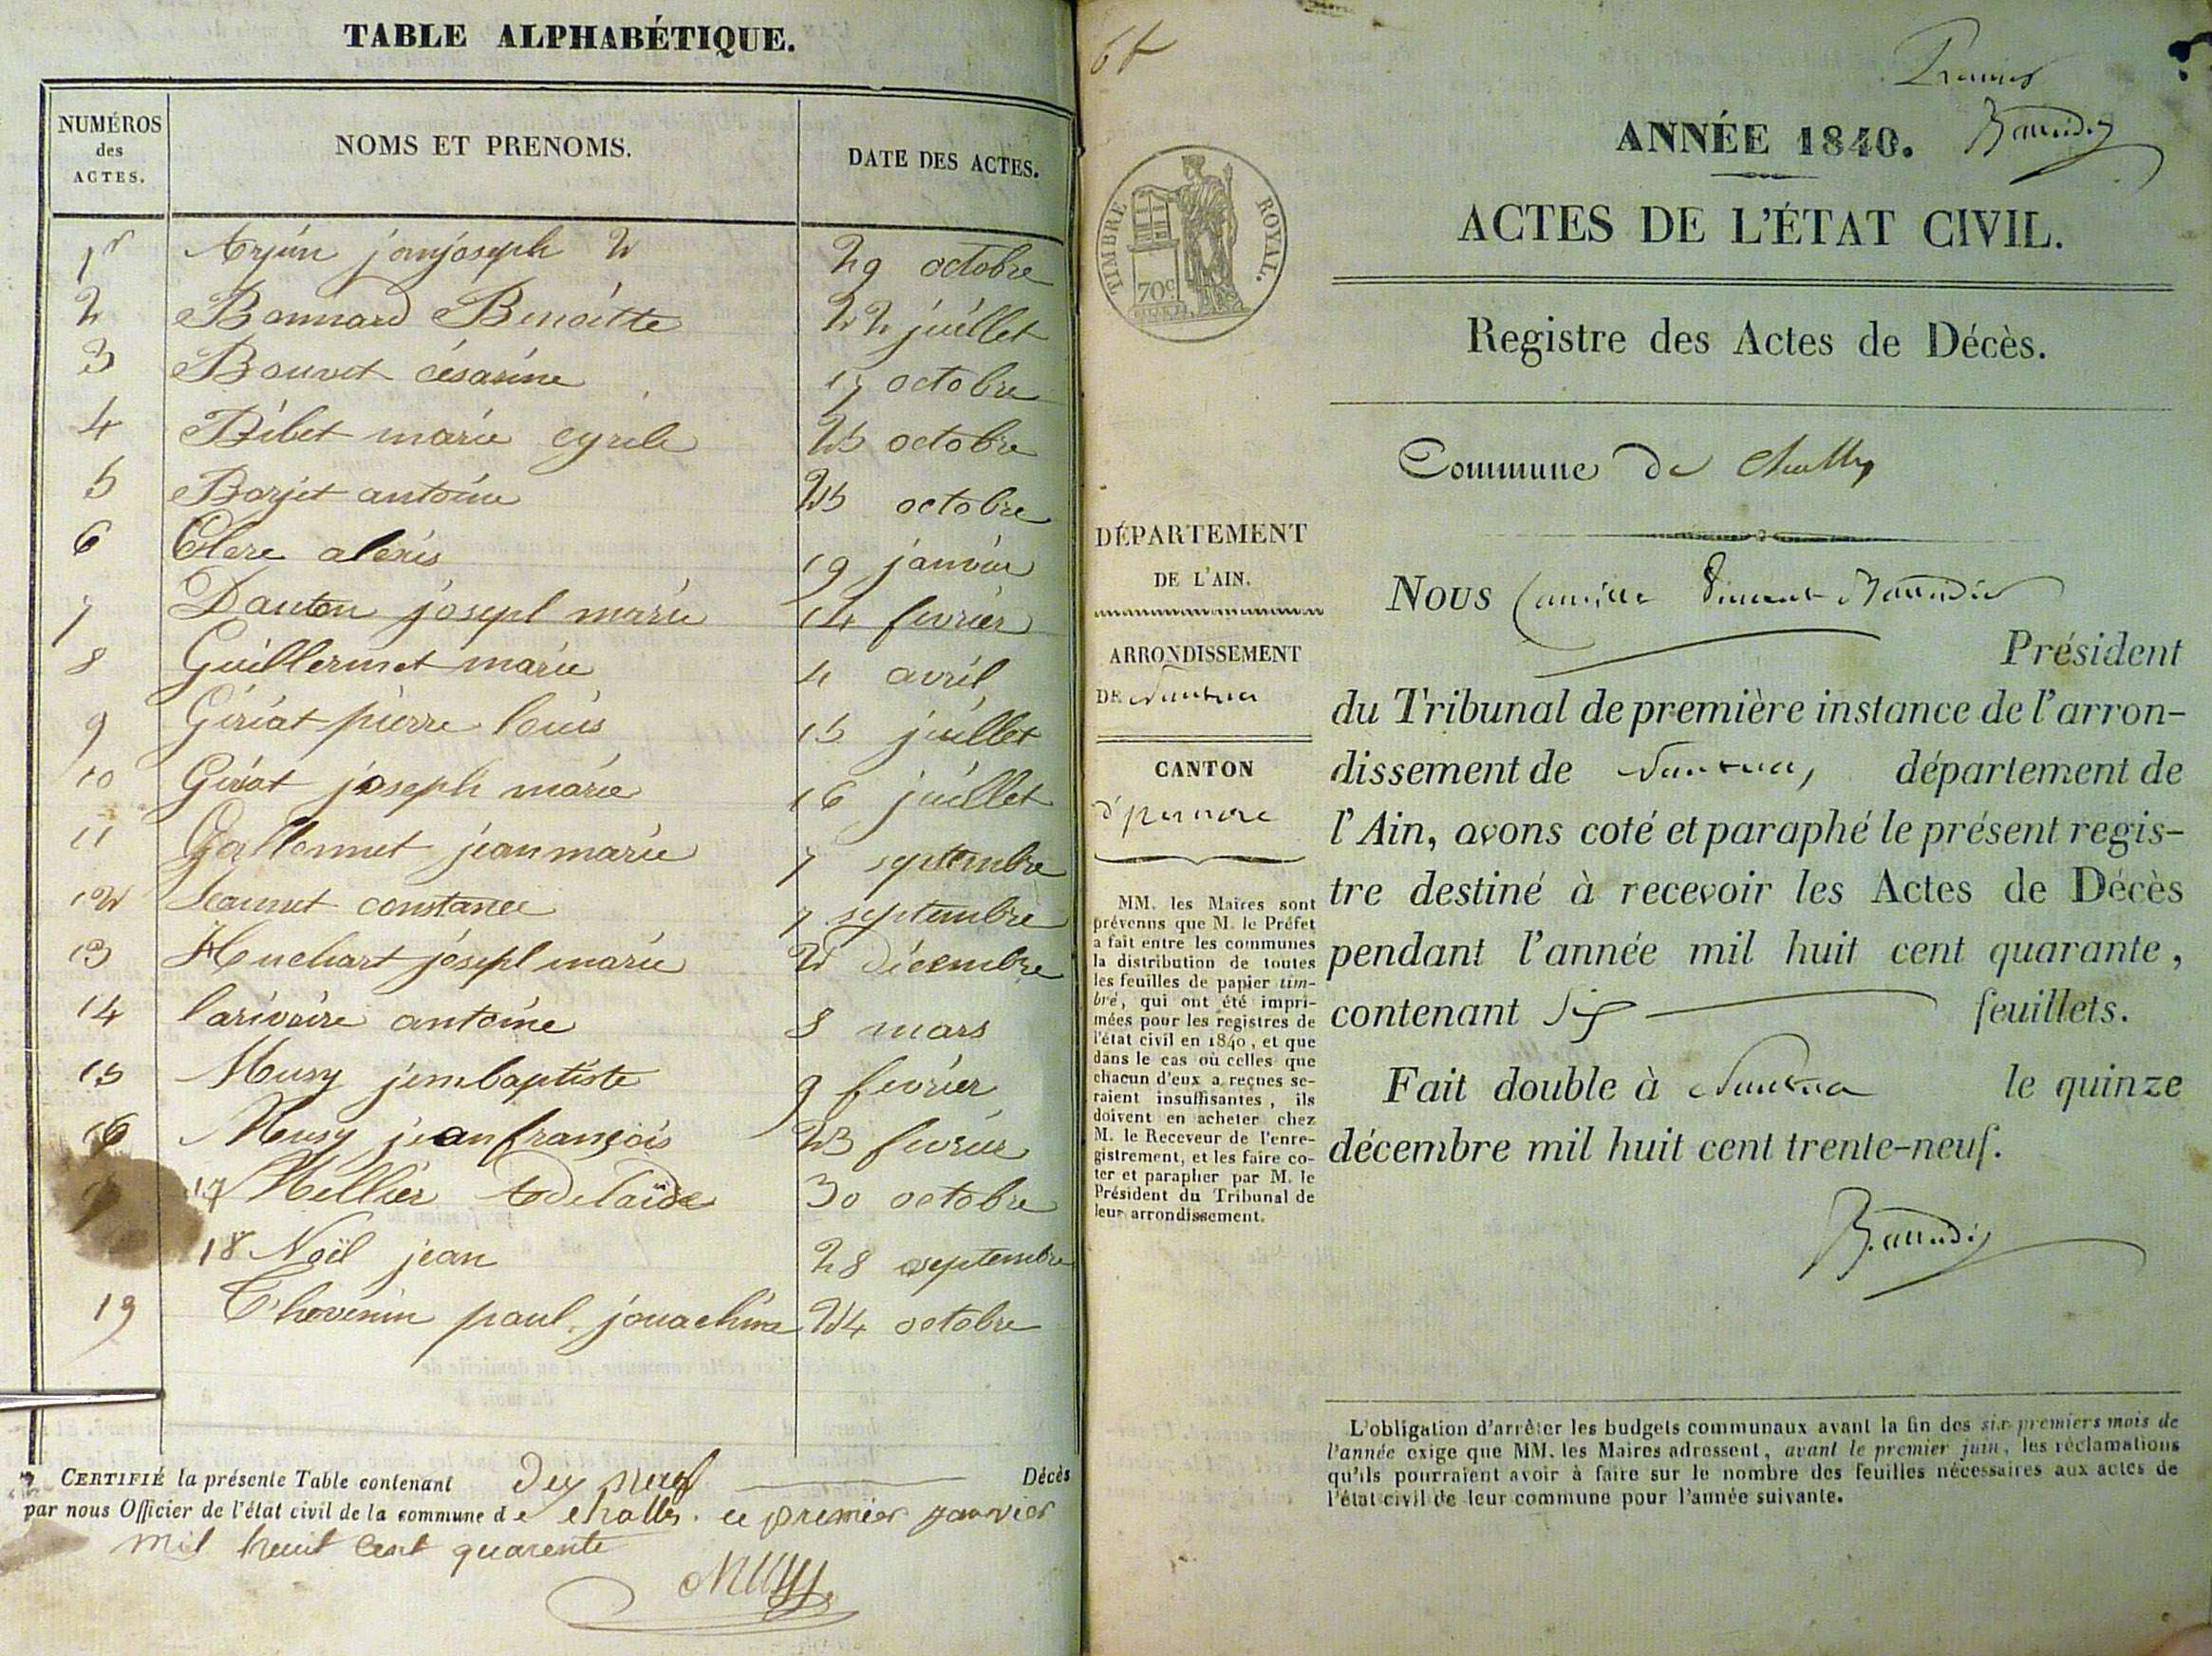 TABLE ALPHABÉTIQUE.
NUMÉROS des ACTES. NOMS ET PRENOMS. DATE DES ACTES.
1r Arjün janjoseph 2 29 octobre
2 Bonnard Benoitte 22 juillet
3 Bouvet césarine 17 octobre
4 Bibet marie cyrile 25 octobre
5 Borjet antoine 25 octobre
6 Clerc alexis 19 janvier
7 Danton josepl marie 14 fevrier
8 Guillermet marie 4 avril
9 Giriat pierre louis 15 juillet
10 Giriat joseph marie 16 juillet
11 jean marie 7 septembre
12 Jeannet constance 7 septembre
13 Huchart josepl marie 2 décembre
14 larivoire antoine 8 mars
15 Musy jembaptiste 9 fevrier
16 Musy jean françois 23 fevrier
17 Mellier Adelaïde 30 octobre
18 Noël jean 28 septembre
19 Thovenin paul jouachim 24 octobre
CERTIFIÉ la présente Table contenant dex neuf Décès
par nous Officier de l'état civil de la commune de challes ce premier janvier
mil huit cent quarente
Musy
6t
TIMBRE ROYAL.
70c
DÉPARTEMENT
DE L'AIN.
ARRONDISSEMENT
DE Nantua
CANTON
MM. les Maires sont
prévenus que M. le Préfet
a fait entre les communes
la distribution de toutes
les feuilles de papier tim-
bré, qui ont été impri-
mées pour les registres de
l'état civil en 1840, et que
dans le cas où celles que
chacun d'eux a reçues se-
raient insuffisantes, ils
doivent en acheter chez
M. le Receveur de l'enre-
gistrement, et les faire co-
ter et parapher par M. le
Président du Tribunal de
leur arrondissement.
Premier
Baudin
ANNÉE 1840.
ACTES DE L'ÉTAT CIVIL.
Registre des Actes de Décès.
Commune de Challes
Nous Camille Vincent
Président
du Tribunal de première instance de l'arron-
dissement de Nantua, département de
l'Ain, avons coté et paraphé le présent regis-
tre destiné à recevoir les Actes de Décès
pendant l'année mil huit cent quarante,
contenant six feuillets.
Fait double à Nantua le quinze
décembre mil huit cent trente-neuf.
L'obligation d'arrêter les budgets communaux avant la fin des six premiers mois de
l'année exige que MM. les Maires adressent, avant le premier juin, les réclamations
qu'ils pourraient avoir à faire sur le nombre des feuilles nécessaires aux actes de
l'état civil de leur commune pour l'année suivante.